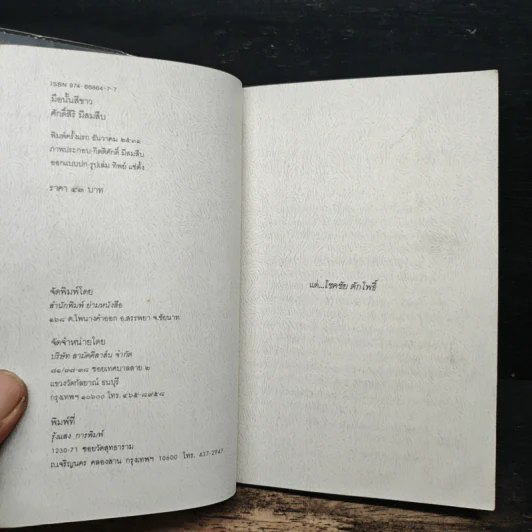 ISBN 974-86864-7-7
มือนั้นสีขาว
ศักดิ์สิริ มีสมสืบ
พิมพ์ครั้งแรก ธันวาคม ๒๕๓๑
ภาพประกอบ กิตติศักดิ์ มีสมสืบ
ออกแบบปก-รูปเล่ม ทิพย์ แซ่ตั้ง
ราคา ๔๒ บาท
จัดพิมพ์โดย
สำนักพิมพ์ ย่ามหนังสือ
๑๖๘ ต.โพนางดำออก อ.สรรพยา จ.ชัยนาท
จัดจำหน่ายโดย
บริษัท สามัคคีสาส์น จำกัด
๘๑/๓๗-๓๘ ซอยเทศบาลสาย ๒
แขวงวัดกัลยาณ์ ธนบุรี
กรุงเทพฯ ๑๐๖๐๐ โทร. ๔๖๕-๘๙๕๘
พิมพ์ที่
รุ้งแสง การพิมพ์
1230-71 ซอยวัดสุทธาราม
ถ.เจริญนคร คลองสาน กรุงเทพฯ 10600 โทร. 437-2947
แด่...โชคชัย ตักโพธิ์